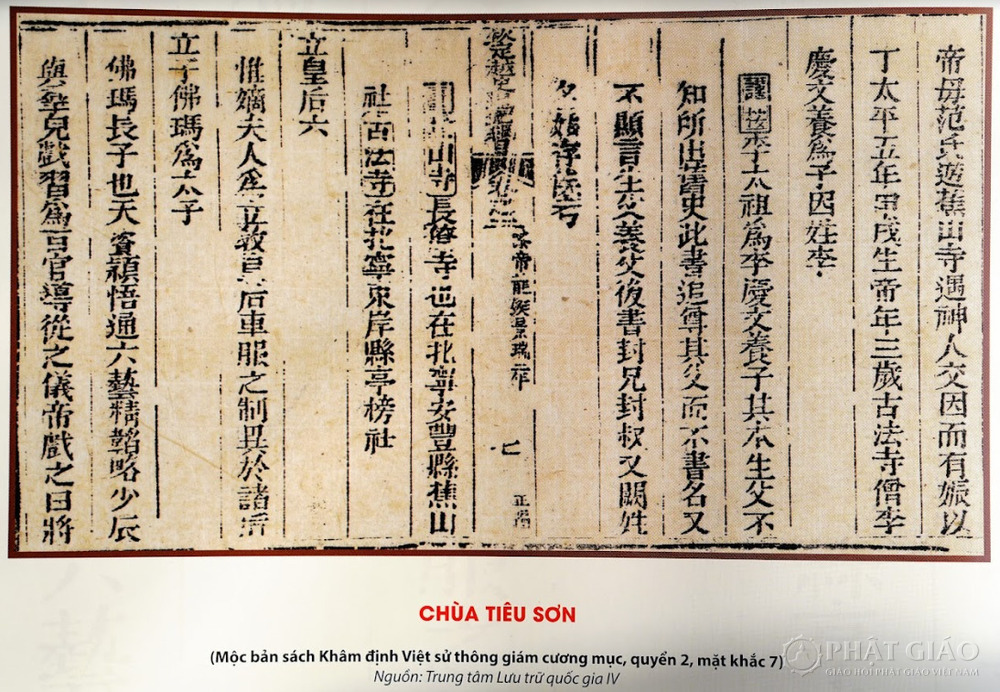 帝母范氏遊蕉山寺遇神人交因而有娠以
丁太平五年甲戌生帝年三歲古法寺僧李
慶文養爲子因姓李
謹按李太祖爲李慶文養子其本生父不
知所出舊史此書追尊其父而不書名又
不顯言生父養父後書封兄封叔又闕姓
名姑存陸考
欽定越史
帝
七
山寺長僚寺也在北寧安豐縣蕉山
社古法寺在北寧東岸縣亭榜社
立皇后六
惟嫡夫人爲立教皇后車服之制異於諸后
立子佛瑪爲太子
佛瑪長子也天資穎悟通六藝精韜略少辰
與羣兒戲習爲百官導從之儀帝戲之曰將
CHÙA TIÊU SƠN
(Mộc bản sách Khâm định Việt sử thông giám cương mục, quyển 2, mặt khắc 7)
Nguồn: Trung tâm Lưu trữ quốc gia IV
PHẬT GIÁO
GIÁO HỘI PHẬT GIÁO VIỆT NAM